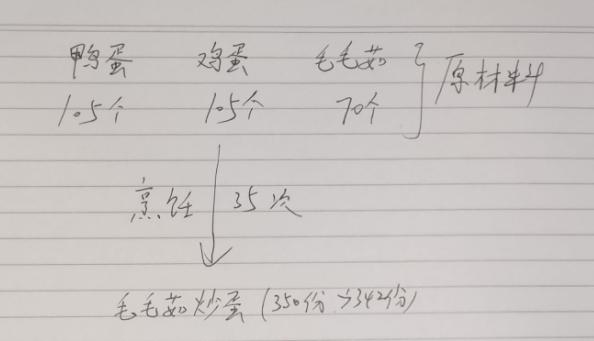 鸭蛋 鸡蛋 毛毛菇 原材料
105个 105个 70个
烹饪 35次
毛毛菇炒蛋(350份>342份)